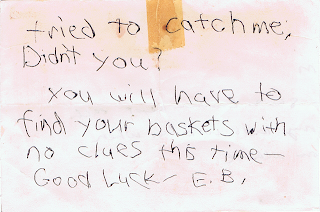 tried to catch me,
Didn't you?
You will have to
find your baskets with
no clues this time—
Good Luck— E.B.